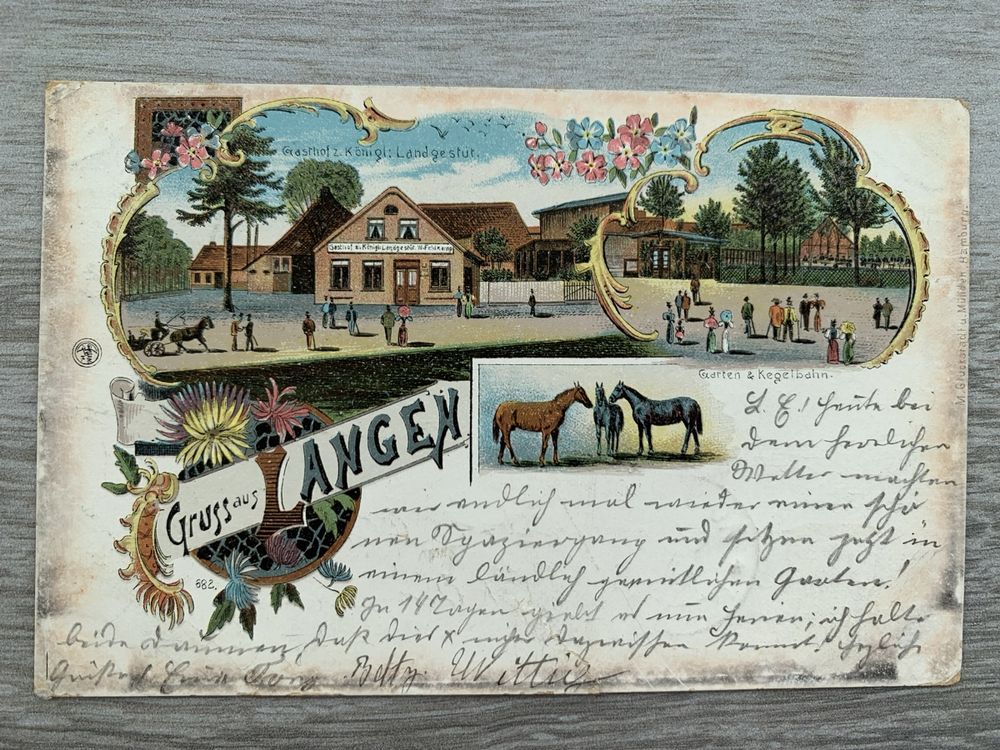 Gasthof z. Königl: Landgestüt.
Gasthof z. Königl. Landgestüt. W. Feldkamp
Garten & Kegelbahn.
Gruss aus LANGEN
682.
M. Glückstadt & Münden, Hamburg.
L. E.! Heute bei
dem herrlichen
Wetter machten
wir endlich mal wieder einen schö
nen Spaziergang und sitzen jetzt in
einem ländlich gemütlichen Garten!
In 14 Tagen giebt es nun Ferien; ich halte
beide Daumen, daß dies x nichts dazwischen kommt! Herzliche
Betty. Wittig